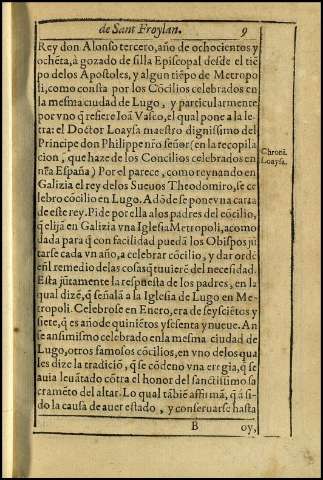 de Sant Froylan. 9
Rey don Alonso tercero, año de ochocientos y
ochēta, à gozado de silla Episcopal desde el tiē
po delos Apostoles, y algun tiēpo de Metropo
li, como consta por los Cōcilios celebrados en
la mesma ciudad de Lugo, y particularmente
por vno q̄ refiere Ioā Vaseo, el qual pone a la le-
tra: el Doctor Loaysa maestro dignissimo del
Principe don Philippe nr̄o señor (en la recopila
cion, que haze de los Concilios celebrados en
nr̄a España) Por el parece, como reynando en
Galizia el rey de los Sueuos Theodomiro, se ce
lebro cōcilio en Lugo. Adōde se pone vna carta
de este rey. Pide por ella alos padres del cōcilio,
q̄ elijā en Galizia vna Iglesia Metropoli, acomo
dada para q̄ con facilidad puedā los Obispos jū
tarse cada vn año, a celebrar cōcilio, y dar ordē
enl remedio delas cosas q̄ tuuierē del necesidad.
Esta jūtamente la respuesta de los padres, en la
qual dizē, q̄ señalā a la Iglesia de Lugo en Me-
tropoli. Celebrose en Enero, era de seysciētos y
siete, q̄ es año de quiniētos y sesenta y nueue. An
se ansimismo celebrado en la mesma ciudad de
Lugo, otros famosos cōcilios, en vno delos qua
les dize la tradiciō, q̄ se cōdeno vna eregia, q̄ se
auia leuātado cōtra el honor del sanctissimo sa
cramēto del altar. Lo qual tābiē affirmā, q̄ à si-
do la causa de auer estado, y conseruarse hasta
B oy,
Chronī.
Loaysa.